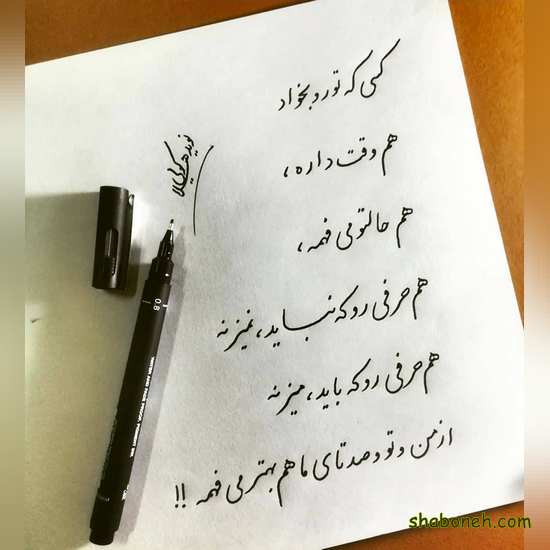 کسی که تو رو بخواد
هم وقت داره،
هم حالتو می فهمه،
هم حرفی رو که نباید، نمیزنه
هم حرفی رو که باید، میزنه
از من و تو و صد تای ما هم بهتر می فهمه !!
0.8
shaboneh.com